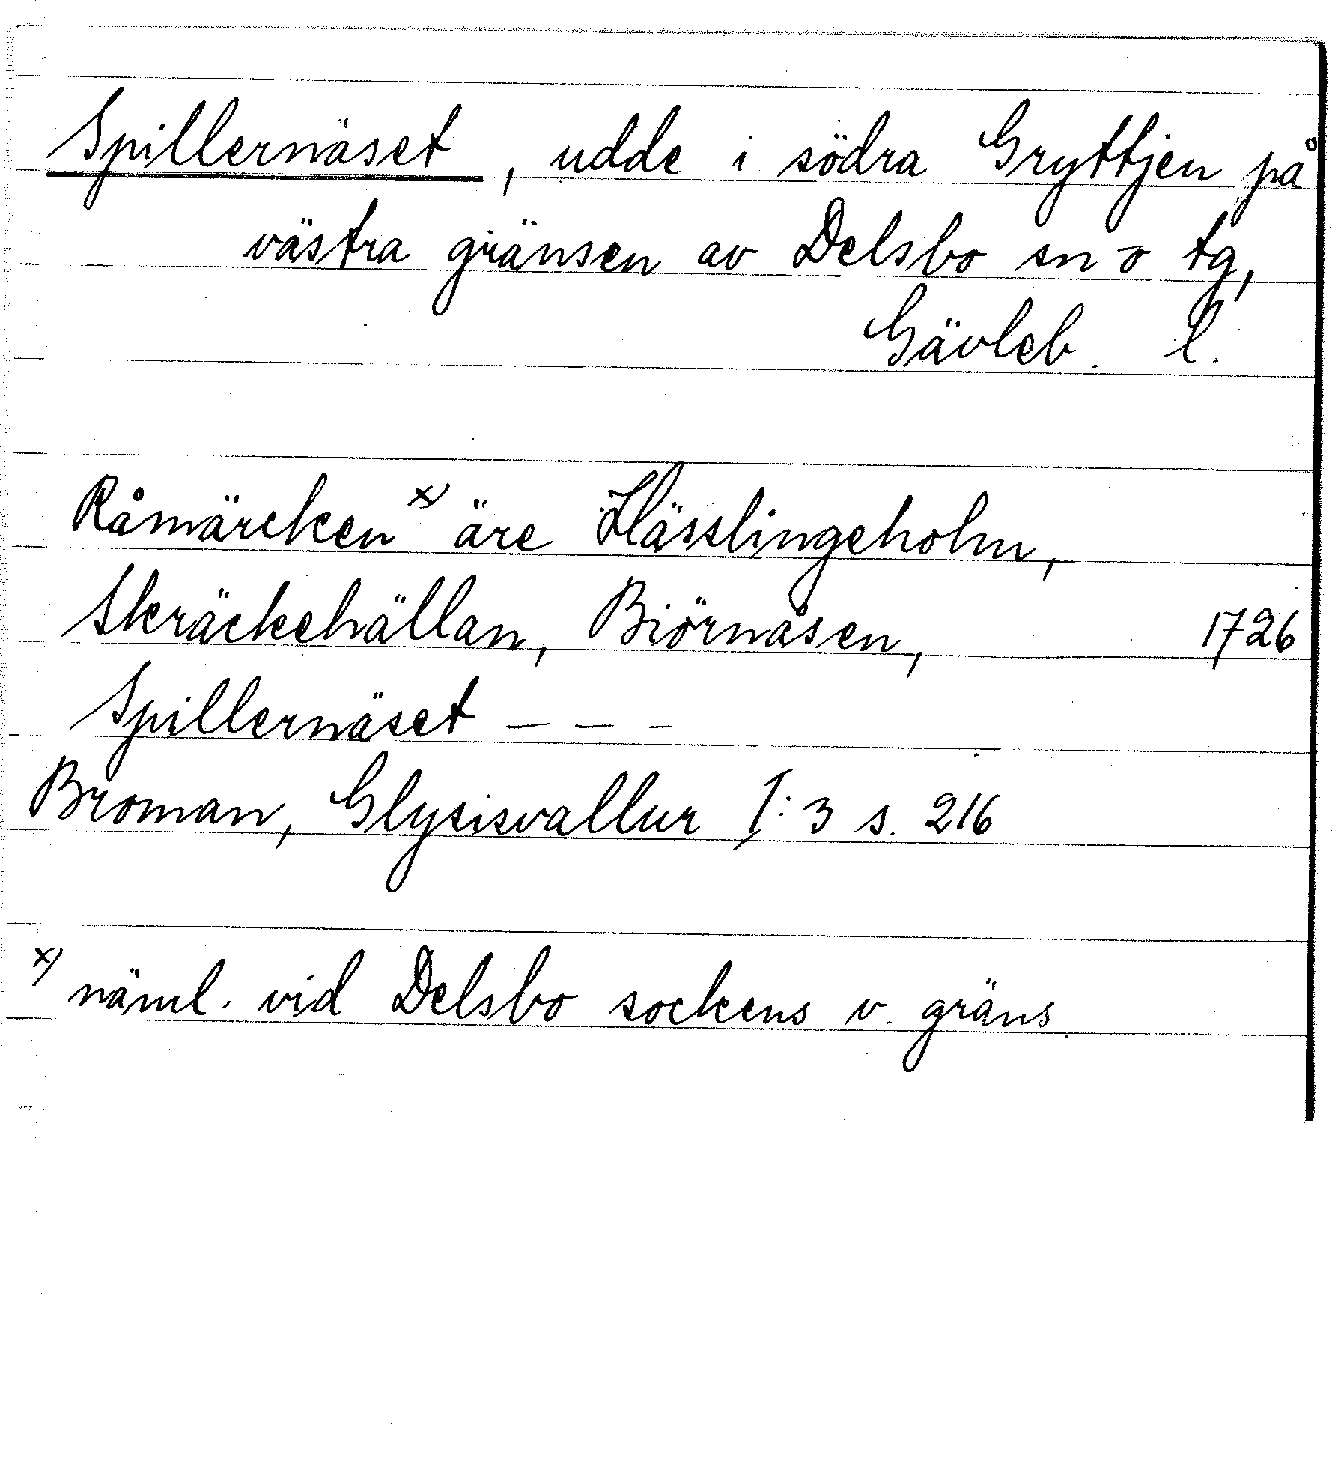 Spillernäset, udde i södra Gryttjen på
västra gränsen av Delsbo sn o tg,
Gävleb. l.
Råmärcken x) äre Hässlingeholm,
Skräckehällan, Biörnåsen, 1726
Spillernäset – – –
Broman, Glysisvallur I:3 s. 216
x) näml. vid Delsbo sockens v. gräns.